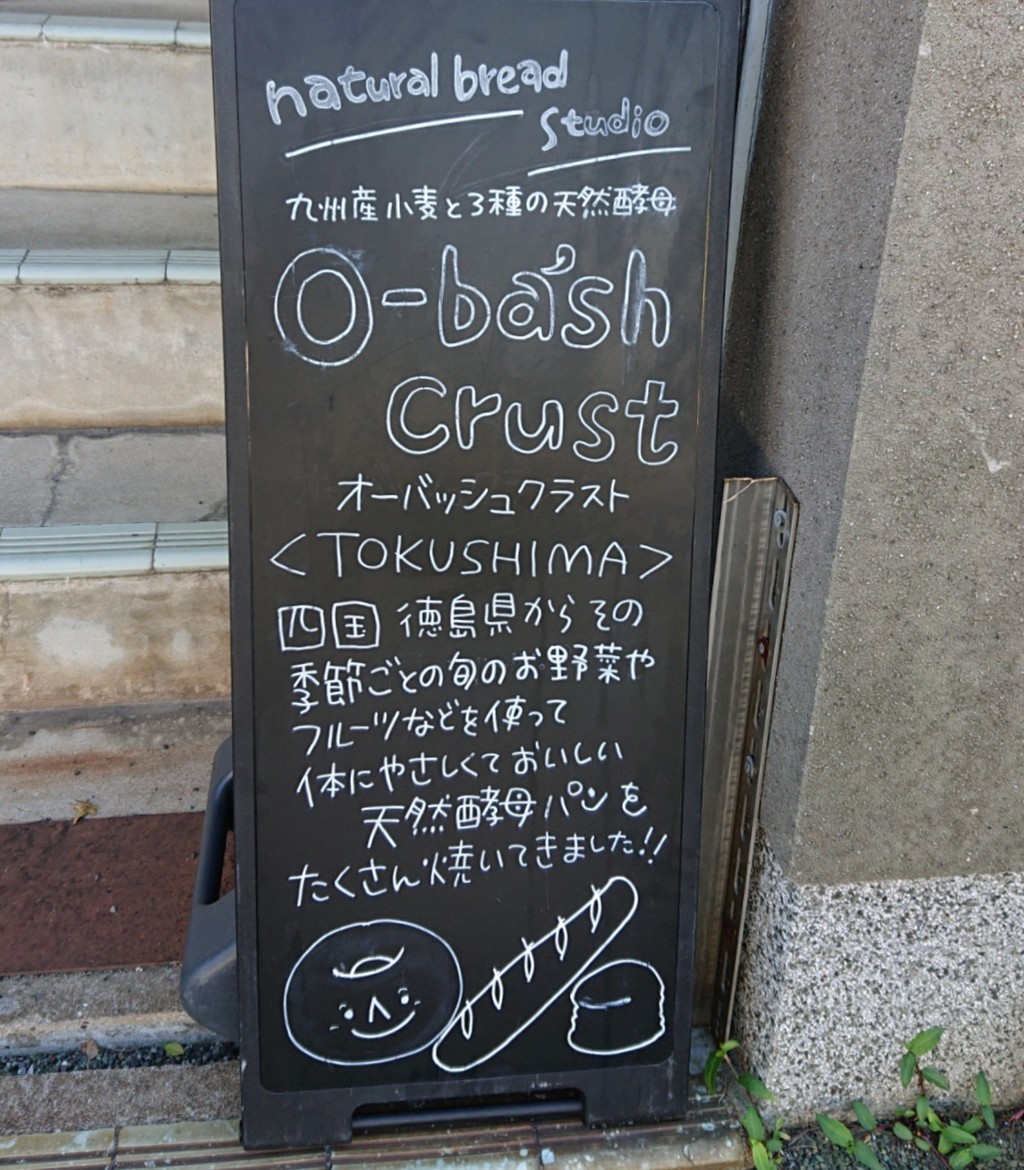 natural bread
studio
九州産小麦と3種の天然酵母
O-ba'sh
Crust
オーバッシュクラスト
<TOKUSHIMA>
四国 徳島県からその
季節ごとの旬のお野菜や
フルーツなどを使って
体にやさしくておいしい
天然酵母パンを
たくさん焼いてきました!!